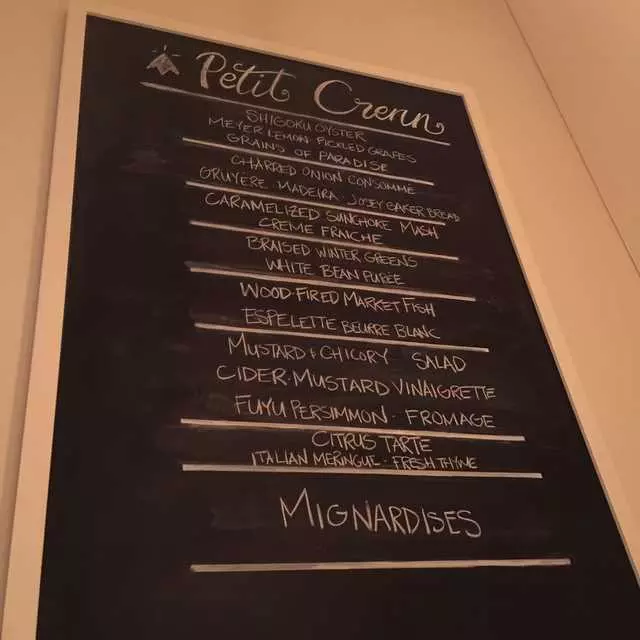 Petit Crenn
SHIGOKU OYSTER
MEYER LEMON · PICKLED GRAPES
GRAINS OF PARADISE
CHARRED ONION CONSOMMÉ
GRUYÈRE · MADEIRA · JOSEY BAKER BREAD
CARAMELIZED SUNCHOKE MASH
CRÈME FRAICHE
BRAISED WINTER GREENS
WHITE BEAN PURÉE
WOOD-FIRED MARKET FISH
ESPELETTE BEURRE BLANC
MUSTARD & CHICORY SALAD
CIDER·MUSTARD VINAIGRETTE
FUYU PERSIMMON · FROMAGE
CITRUS TARTE
ITALIAN MERINGUE · FRESH THYME
MIGNARDISES